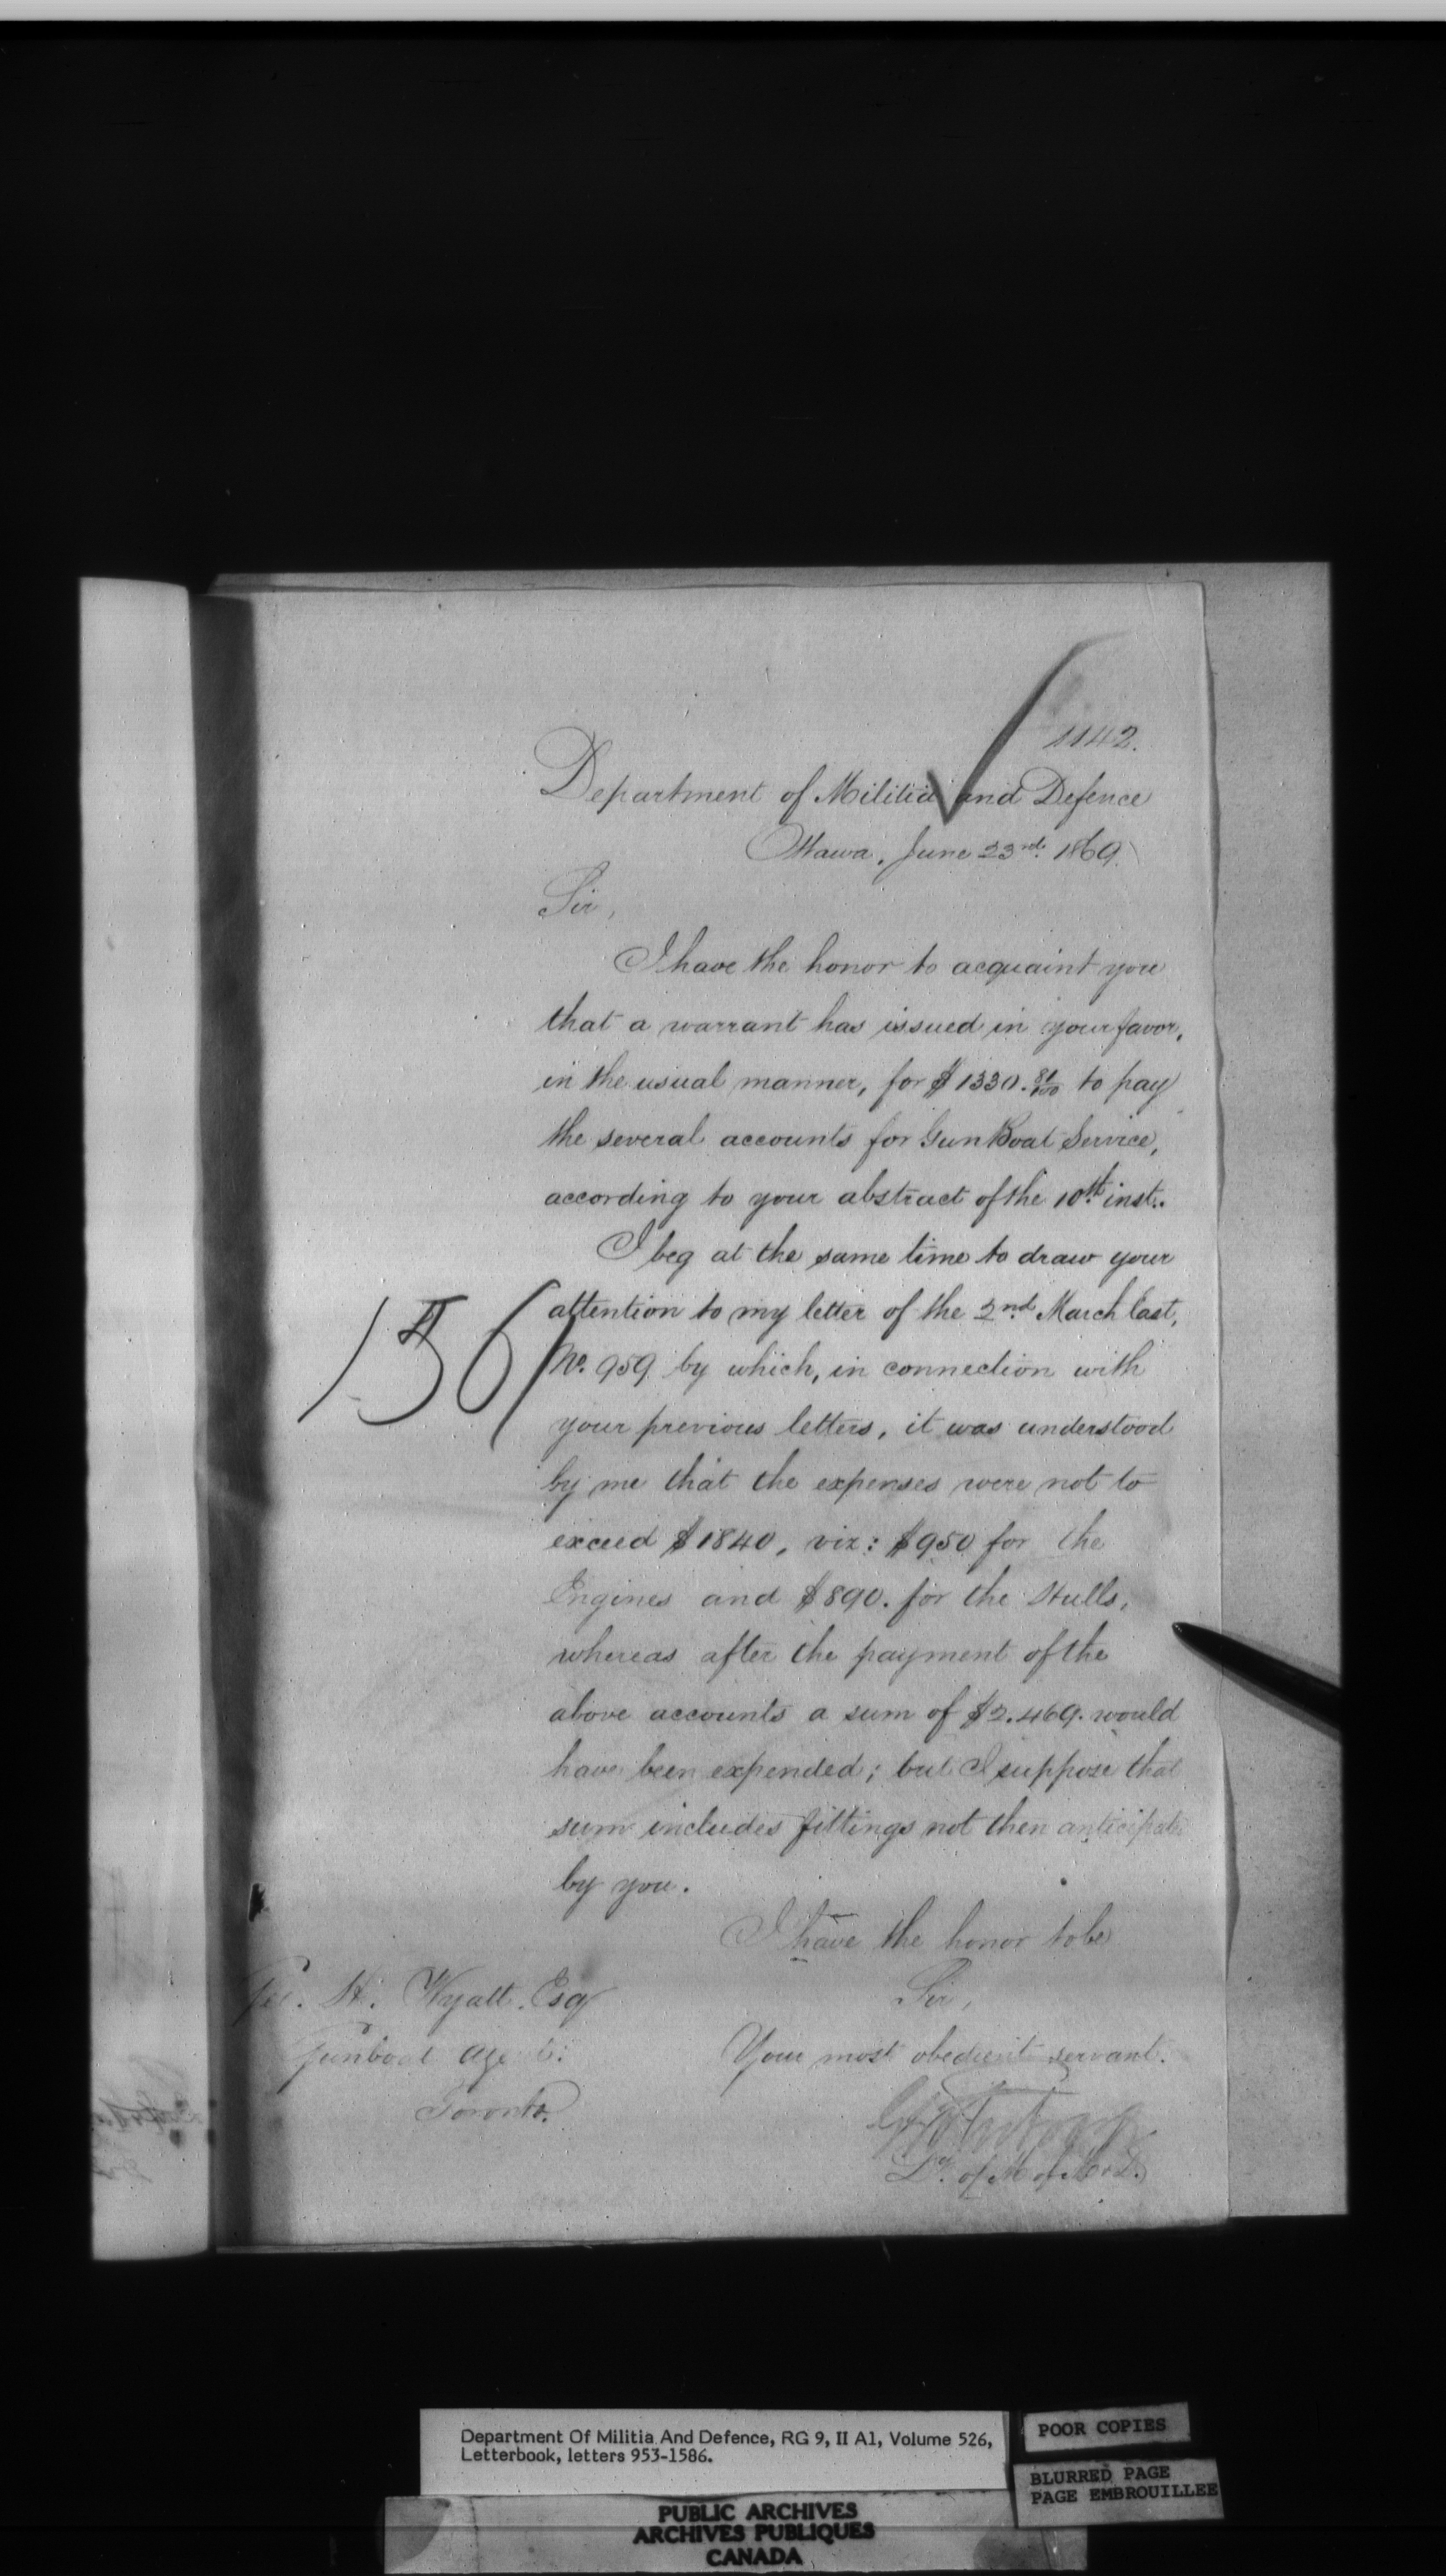 1142.
Department of Militia and Defence
Ottawa, June 23rd. 1869.
Sir,
I have the honor to acquaint you
that a warrant has issued in your favor,
in the usual manner, for $1330.81/100 to pay
the several accounts for Gun Boat Service,
according to your abstract of the 10th. inst..
I beg at the same time to draw your
attention to my letter of the 2nd. March last,
No. 959 by which, in connection with
your previous letters, it was understood
by me that the expenses were not to
exceed $1840, viz: $950 for the
Engines and $890. for the Hulls,
whereas after the payment of the
above accounts a sum of $2.469. would
have been expended; but I suppose that
sum includes fittings not then anticipated
by you.
I have the honor to be
Sir,
Your most obedient servant.
H. Wyatt. Esq
Gunboat Agent.
Toronto.
of M of M & D.
Department Of Militia And Defence, RG 9, II A1, Volume 526,
Letterbook, letters 953-1586.
POOR COPIES
BLURRED PAGE
PAGE EMBROUILLEE
PUBLIC ARCHIVES
ARCHIVES PUBLIQUES
CANADA